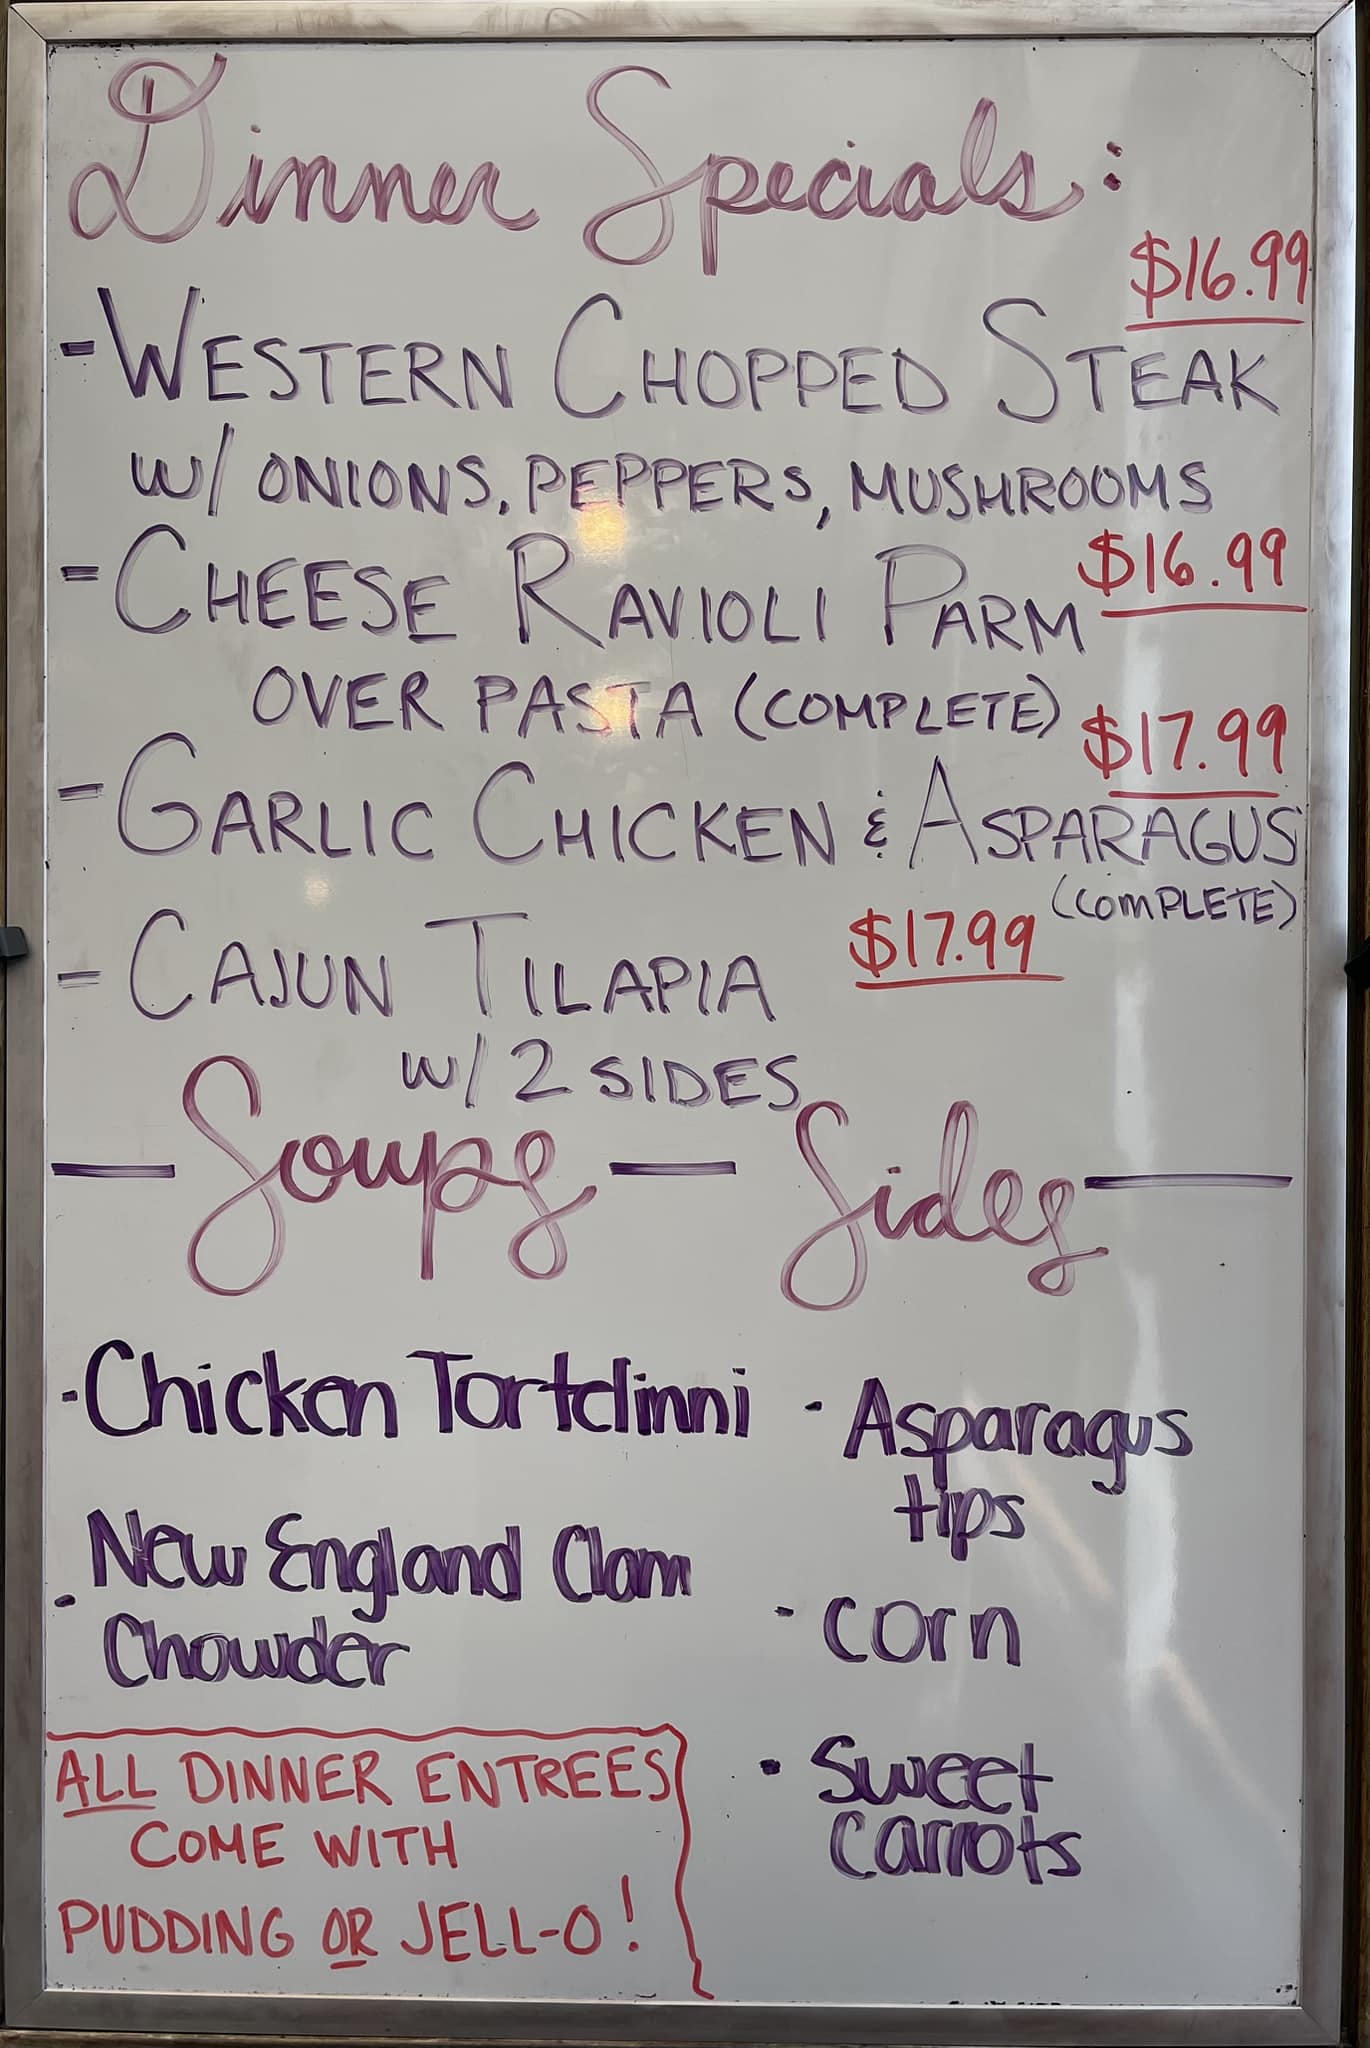 Dinner Specials:
$16.99
- WESTERN CHOPPED STEAK
W/ ONIONS, PEPPERS, MUSHROOMS
$16.99
- CHEESE RAVIOLI PARM
OVER PASTA (COMPLETE)
$17.99
- GARLIC CHICKEN & ASPARAGUS
(COMPLETE)
- CAJUN TILAPIA $17.99
W/ 2 SIDES
— Soups — Sides —
- Chicken Tortelinni
- New England Clam
Chowder
- Asparagus
tips
- corn
- Sweet
Carrots
ALL DINNER ENTREES
COME WITH
PUDDING OR JELL-O!